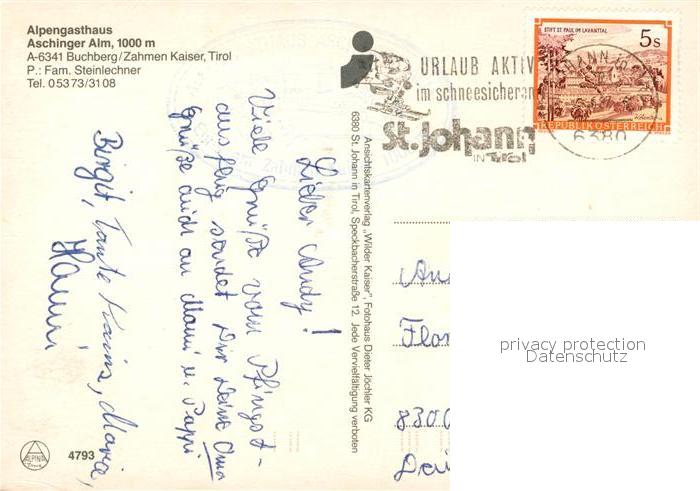 Alpengasthaus
Aschinger Alm, 1000 m
A-6341 Buchberg/Zahmen Kaiser, Tirol
P.: Fam. Steinlechner
Tel. 05373/3108
URLAUB AKTIV
im schneesicheren
St. Johann
IN TIROL
STIFT ST. PAUL IM LAVANTTAL
5s
REPUBLIK ÖSTERREICH
6380
Lieber Andy!
Viele Grüße vom Pfingst-
ausflug sendet Dir Deine Oma
Grüße auch an Mami u. Pappi
Birgit, Tante Maria,
Hanni
Ansichtskartenverlag „Wilder Kaiser", Fotohaus Dieter Jöchler KG
6380 St. Johann in Tirol, Speckbacherstraße 12. Jede Vervielfältigung verboten
An
Flor
8300
privacy protection
Datenschutz
ALPINA
4793